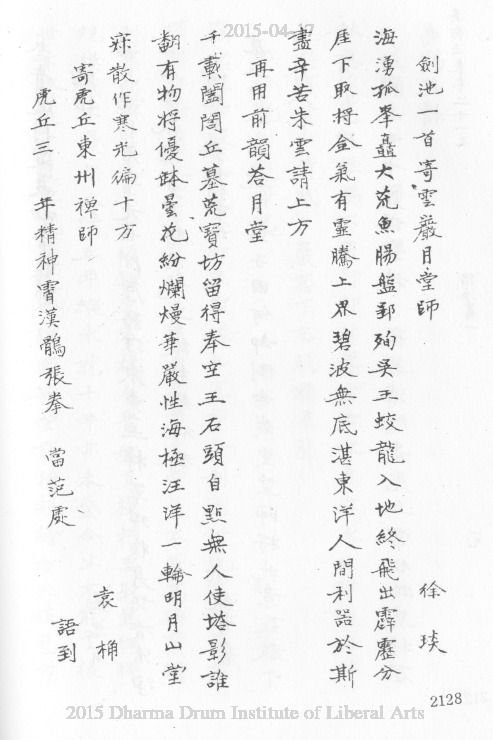 2015-04-17
劍池一首寄雲巖月堂師
徐琰
海湧孤峯矗大荒魚腸盤郢殉吳王蛟龍入地終飛出霹靂分
崖下取將金氣有靈騰上界碧波無底湛東洋人間利器於斯
盡辛苦朱雲請上方
再用前韻荅月堂
千載闔閭丘墓荒寶坊留得奉空王石頭自點無人使塔影誰
翻有物將優鉢曇花紛爛熳華嚴性海極汪洋一輪明月山堂
寂散作寒光徧十方
寄虎丘東州禪師
袁桷
虎丘三年精神霄漢鶻張拳當范處語到
2128
2015 Dharma Drum Institute of Liberal Arts